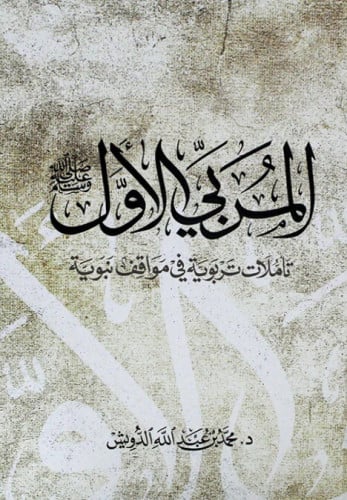 المربي الأول ﷺ
تأملات تربوية في مواقف نبوية
د. محمد بن عبد الله الدويش